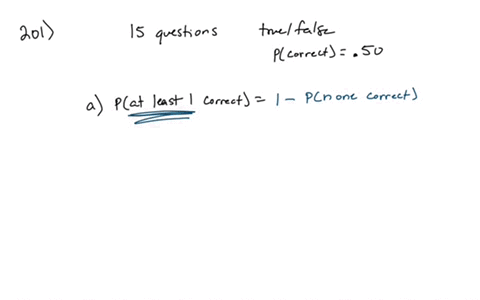 201) 15 questions true/false
P(correct) = .50
a) P(at least 1 correct) = 1 - P(none correct)